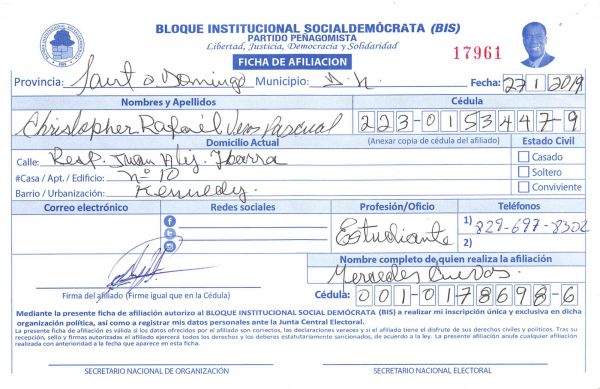 BLOQUE INSTITUCIONAL SOCIALDEMÓCRATA (BIS)
PARTIDO PEÑAGOMISTA
Libertad, Justicia, Democracia y Solidaridad
FICHA DE AFILIACION
17961
Provincia: Santo Domingo Municipio: D.N. Fecha: 27 1 2019
Nombres y Apellidos Cédula
Christopher Rafael Pascual 223-0153447-9
Domicilio Actual (Anexar copia de cédula del afiliado) Estado Civil
Calle: Resp. Juan Alej. Ibarra Casado
#Casa / Apt. / Edificio: Nº 10 Soltero
Barrio / Urbanización: Kennedy. Conviviente
Correo electrónico Redes sociales Profesión/Oficio Teléfonos
Estudiante 1) 829-697-8302
2)
Nombre completo de quien realiza la afiliación
Mercedes Cuevas
Firma del afiliado (Firme igual que en la Cédula) Cédula: 001-0178698-6
Mediante la presente ficha de afiliación autorizo al BLOQUE INSTITUCIONAL SOCIAL DEMÓCRATA (BIS) a realizar mi inscripción única y exclusiva en dicha
organización política, así como a registrar mis datos personales ante la Junta Central Electoral.
La presente ficha de afiliación es válida si los datos ofrecidos por el afiliado son correctos, las declaraciones veraces y si el afiliado tiene el disfrute de sus derechos civiles y políticos. Tras su
recepción, sello y firmas autorizadas el afiliado ejercerá todos los derechos y los deberes estatutariamente sancionados, de acuerdo a la ley. La presente afiliación anula cualquier afiliación
realizada con anterioridad a la fecha que aparece en esta ficha.
SECRETARIO NACIONAL DE ORGANIZACIÓN SECRETARIO NACIONAL ELECTORAL